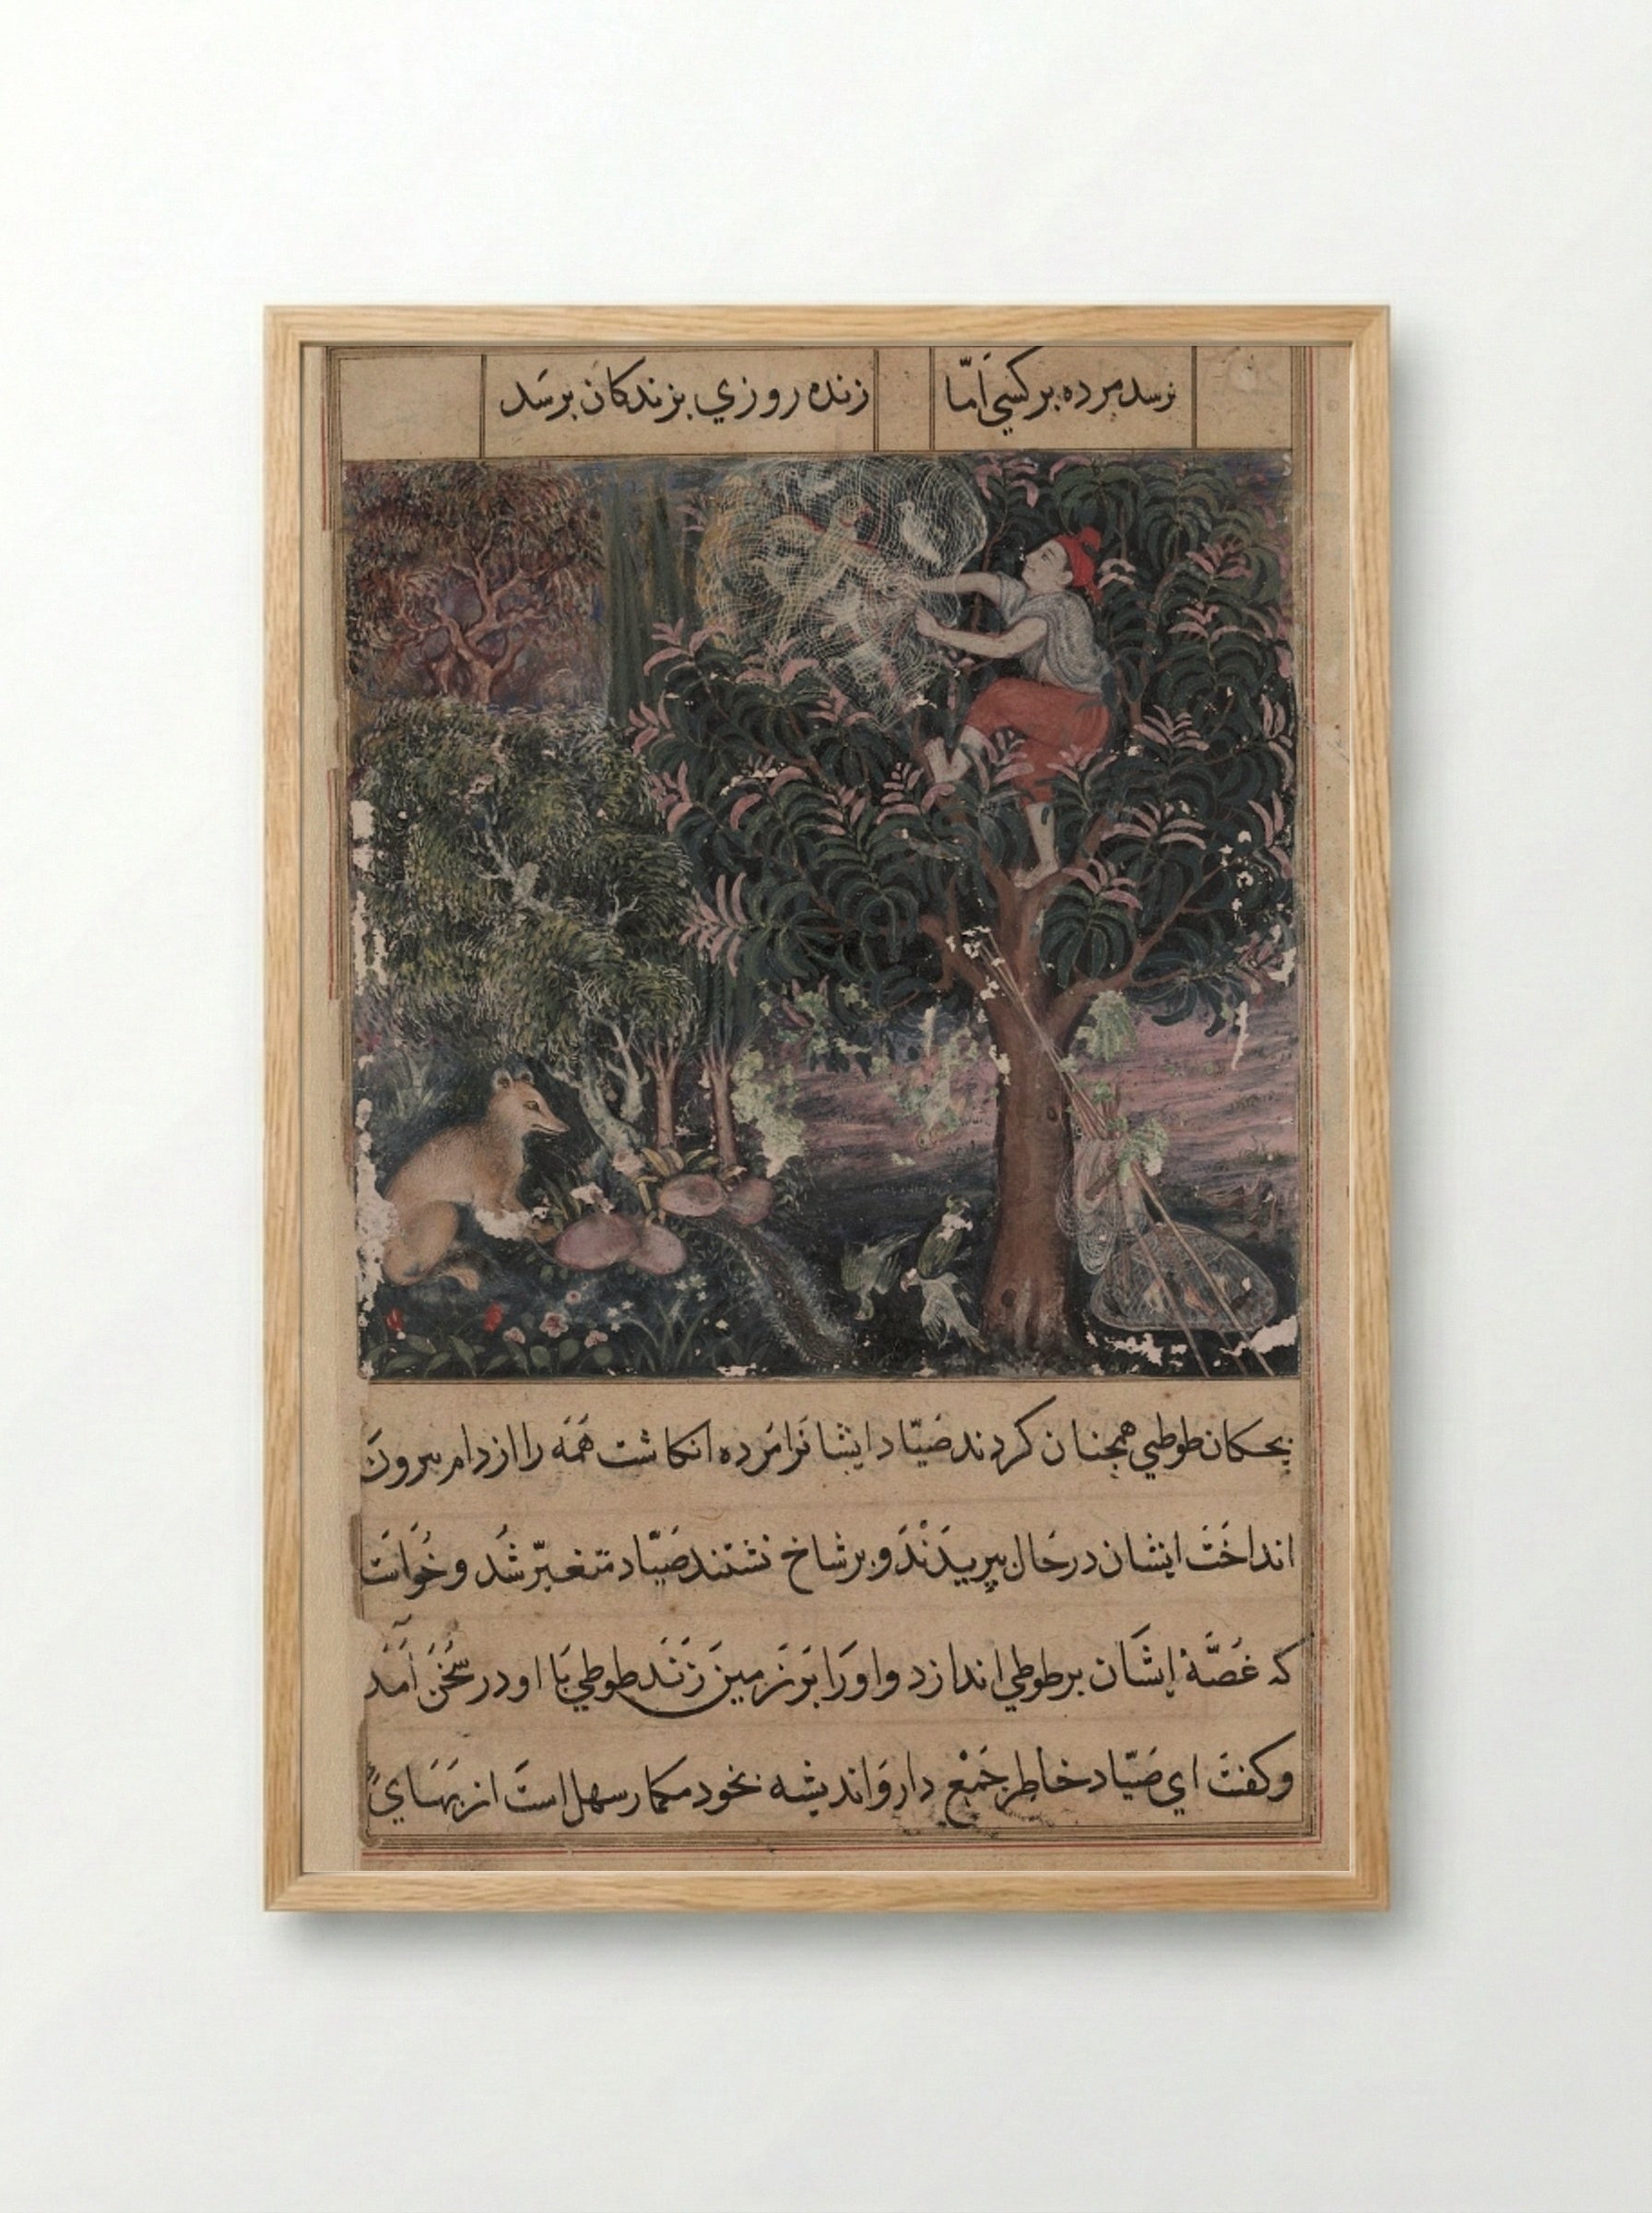 نرسد مرده بر کسي اَمّا زنده روزي بزندکان برسَد
بچکان طوطي همچنان کردند صَيّاد ايشانرا مَرده انکاشت هَمَه را از دام بيرون
انداخَت ايشان درحَال بپريدَنْدَ و بر شاخ نشتند صَيّاد متغيّر شُد و خُواسَت
که غُصَّهٔ اِيشَان بر طوطي اندازد و اورا بَر زَمين زَنَد طوطي بَا او در سُخَن آمَد
و کفتَ اي صَيّاد خاطر جَمْع دار و انديشه بخود مکمار سهل استَ از بَهَاي